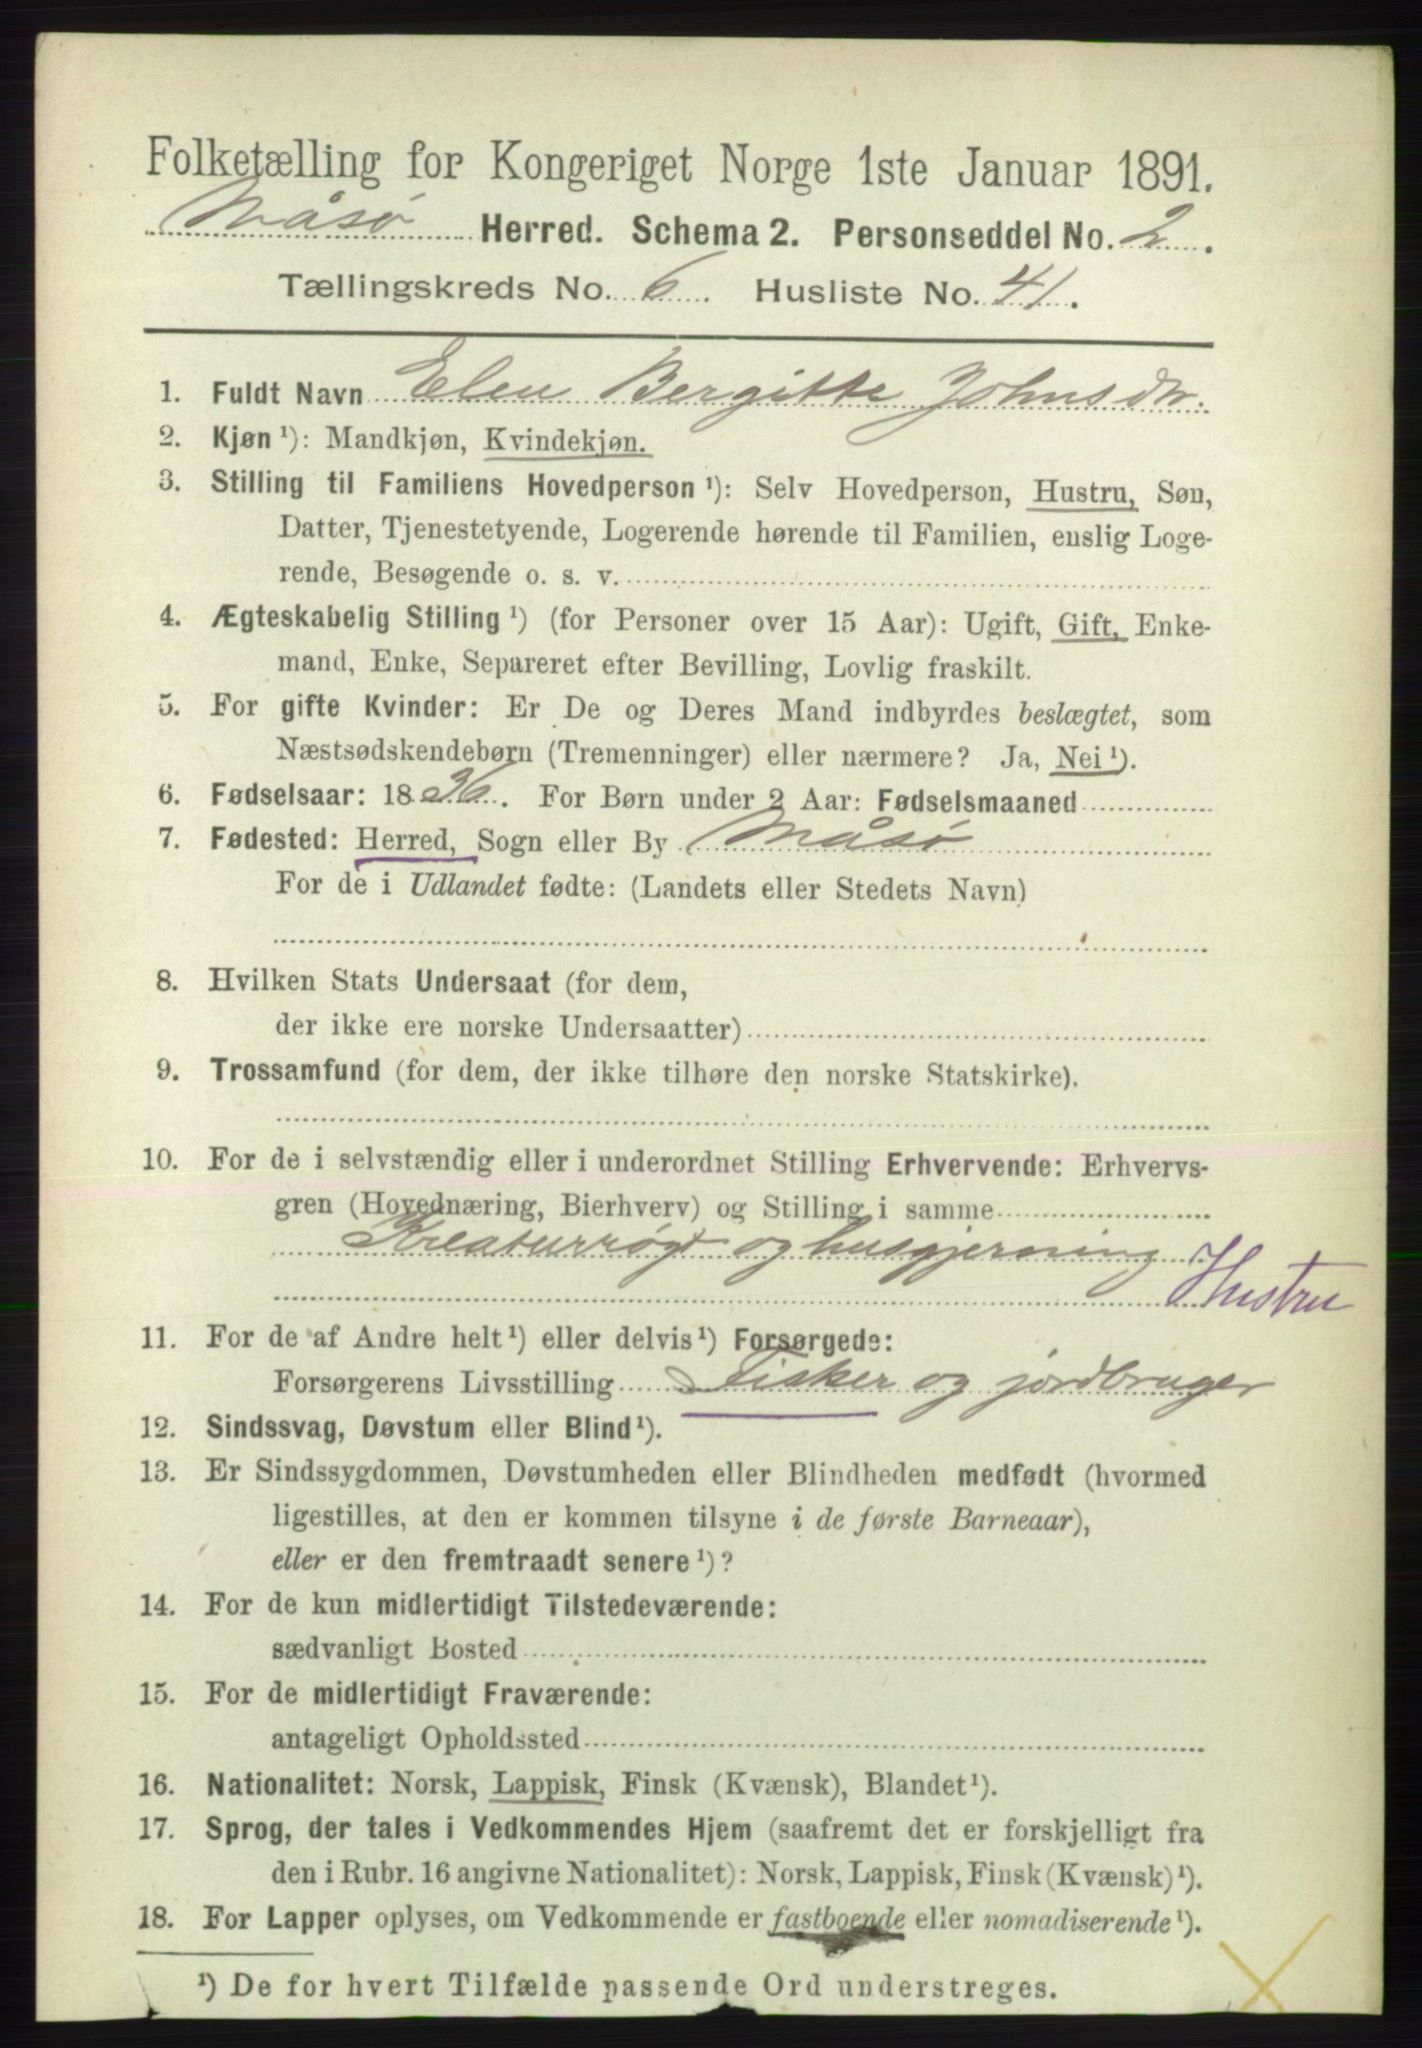 Folketælling for Kongeriget Norge 1ste Januar 1891.
Måsø Herred. Schema 2. Personseddel No. 2.
Tællingskreds No. 6. Husliste No. 41.
1. Fuldt Navn Elen Bergitte Johnsdtr.
2. Kjøn ¹): Mandkjøn, Kvindekjøn.
3. Stilling til Familiens Hovedperson ¹): Selv Hovedperson, Hustru, Søn,
Datter, Tjenestetyende, Logerende hørende til Familien, enslig Loge-
rende, Besøgende o. s. v.
4. Ægteskabelig Stilling ¹) (for Personer over 15 Aar): Ugift, Gift, Enke-
mand, Enke, Separeret efter Bevilling, Lovlig fraskilt.
5. For gifte Kvinder: Er De og Deres Mand indbyrdes beslægtet, som
Næstsødskendebørn (Tremenninger) eller nærmere? Ja, Nei ¹).
6. Fødselsaar: 1836. For Børn under 2 Aar: Fødselsmaaned
7. Fødested: Herred, Sogn eller By Måsø
For de i Udlandet fødte: (Landets eller Stedets Navn)
8. Hvilken Stats Undersaat (for dem,
der ikke ere norske Undersaatter)
9. Trossamfund (for dem, der ikke tilhøre den norske Statskirke).
10. For de i selvstændig eller i underordnet Stilling Erhvervende: Erhvervs-
gren (Hovednæring, Bierhverv) og Stilling i samme
Kreaturrøgt og husgjerning
Hustru
11. For de af Andre helt ¹) eller delvis ¹) Forsørgede:
Forsørgerens Livsstilling Fisker og jordbruger
12. Sindssvag, Døvstum eller Blind ¹).
13. Er Sindssygdommen, Døvstumheden eller Blindheden medfødt (hvormed
ligestilles, at den er kommen tilsyne i de første Barneaar),
eller er den fremtraadt senere ¹)?
14. For de kun midlertidigt Tilstedeværende:
sædvanligt Bosted
15. For de midlertidigt Fraværende:
antageligt Opholdssted
16. Nationalitet: Norsk, Lappisk, Finsk (Kvænsk), Blandet ¹).
17. Sprog, der tales i Vedkommendes Hjem (saafremt det er forskjelligt fra
den i Rubr. 16 angivne Nationalitet): Norsk, Lappisk, Finsk (Kvænsk) ¹).
18. For Lapper oplyses, om Vedkommende er fastboende eller nomadiserende ¹).
¹) De for hvert Tilfælde passende Ord understreges.